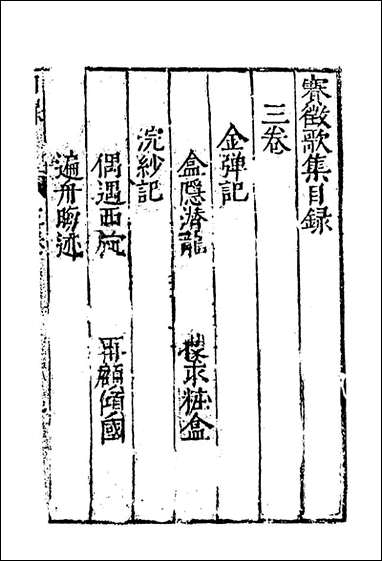 賽徵歌集目録
三卷
金彈記
盒隱潜龍　粧盒
浣紗記
偶遇西施　再顧傾國
遍舟晦迹